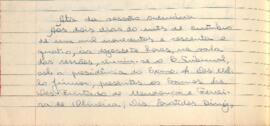 Ata da sessão ordinária
Aos dois dias do mês de outubro
de um mil novecentos e sessenta e
quatro, às dezessete horas, na sala
das sessões, reuniu-se o Tribunal,
sob a presidência do Exmo
Júnior, presentes os Exmos
de Mendonça e Ferrei-
ra de Oliveira, Drs. Aristides